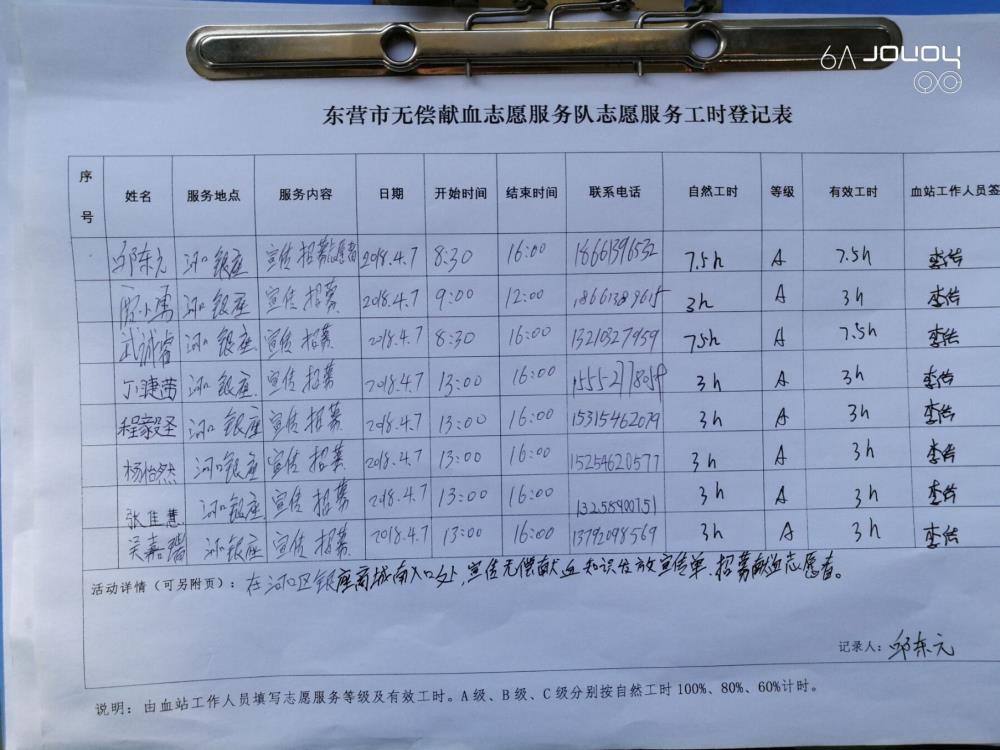 6A JOYOY
东营市无偿献血志愿服务队志愿服务工时登记表
序号 姓名 服务地点 服务内容 日期 开始时间 结束时间 联系电话 自然工时 等级 有效工时 血站工作人员签
邱东元 河口银座 宣传招募志愿者 2018.4.7 8:30 16:00 18661396532 7.5h A 7.5h 李传
小勇 河口银座 宣传招募 2018.4.7 9:00 12:00 18661389615 3h A 3h 李传
武诚睿 河口银座 宣传招募 2018.4.7 8:30 16:00 13210327959 7.5h A 7.5h 李传
丁婕茜 河口银座 宣传招募 2018.4.7 13:00 16:00 15552778059 3h A 3h 李传
程毅圣 河口银座 宣传招募 2018.4.7 13:00 16:00 15315462079 3h A 3h 李传
杨怡然 河口银座 宣传招募 2018.4.7 13:00 16:00 15254620577 3h A 3h 李传
张佳慧 河口银座 宣传招募 2018.4.7 13:00 16:00 13258900751 3h A 3h 李传
吴嘉瑞 河口银座 宣传招募 2018.4.7 13:00 16:00 13792098569 3h A 3h 李传
活动详情（可另附页）：在河口区银座商城南入口处，宣传无偿献血知识发放宣传单、招募献血志愿者。
记录人：邱东元
说明：由血站工作人员填写志愿服务等级及有效工时。A级、B级、C级分别按自然工时100%、80%、60%计时。